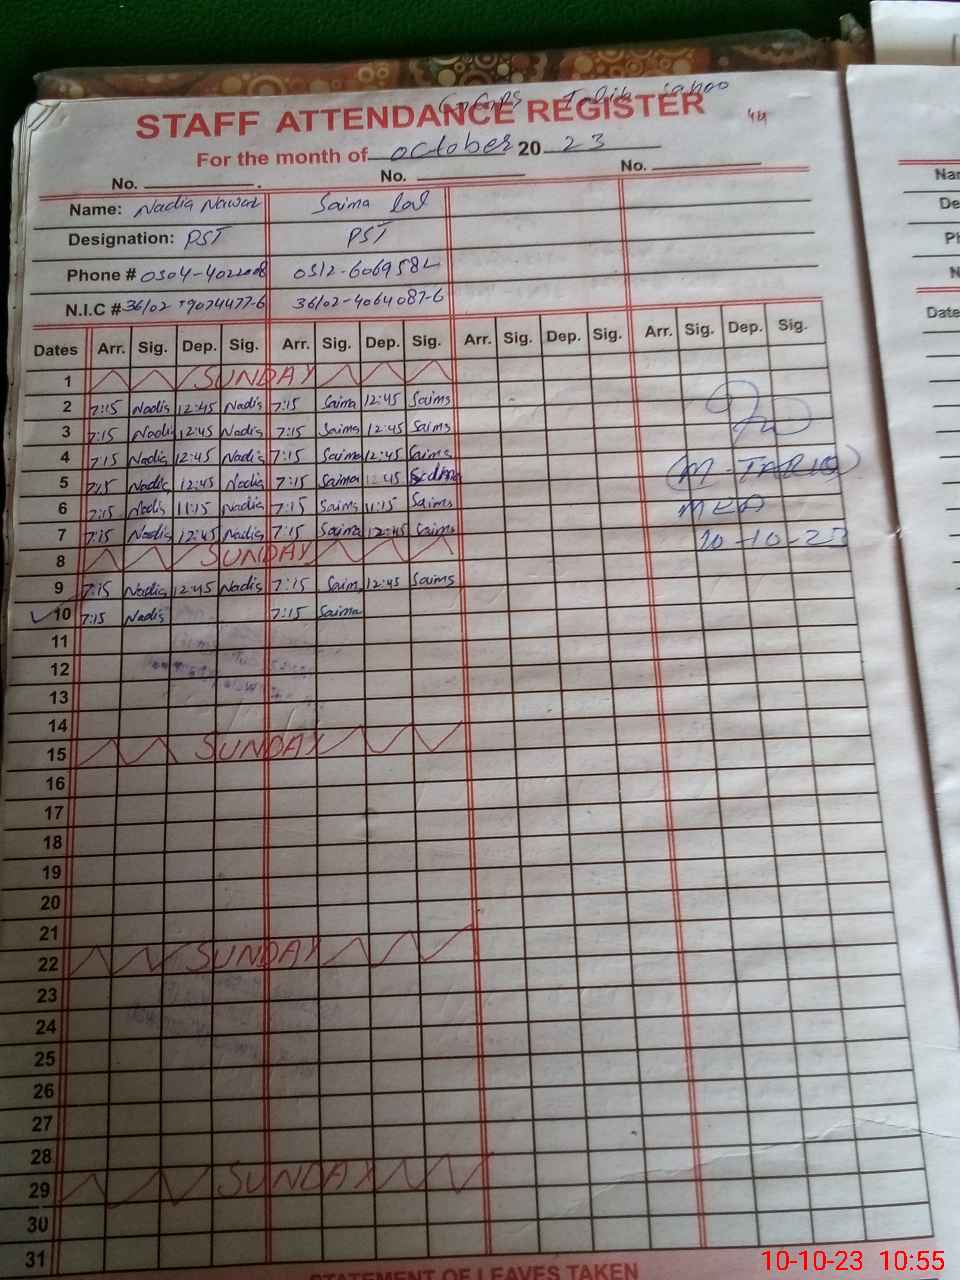 GGPS Talib
STAFF ATTENDANCE REGISTER
44
For the month of october 2023
No. No. No.
Name: Nadia Nawaz Saima
Designation: PST PST
Phone # 0304-4022008 0312-606958
N.I.C # 36102 4064087-6
Dates Arr. Sig. Dep. Sig. Arr. Sig. Dep. Sig. Arr. Sig. Dep. Sig. Arr. Sig. Dep. Sig.
1 SUNDAY
2 7:15 Nadia 12:45 Nadia 7:15 Saima 12:45 Saima
3 7:15 Nadia 12:45 Nadia 7:15 Saima 12:45 Saima
4 7:15 Nadia 12:45 Nadia 7:15 Saima 12:45 Saima
5 7:15 Nadia 12:45 Nadia 7:15 Saima 12:45 Saima
6 7:15 Nadia 11:15 Nadia 7:15 Saima 11:15 Saima
7 7:15 Nadia 12:45 Nadia 7:15 Saima 12:45 Saima
8 SUNDAY
9 7:15 Nadia 12:45 Nadia 7:15 Saima 12:45 Saima
10 7:15 Nadia 7:15 Saima
(M-TARIQ)
MEA
10-10-23
11
12
13
14
15 SUNDAY
16
17
18
19
20
21
22 SUNDAY
23
24
25
26
27
28
29 SUNDAY
30
31
STATEMENT OF LEAVES TAKEN
Nar
De
Ph
N
Date
10-10-23 10:55